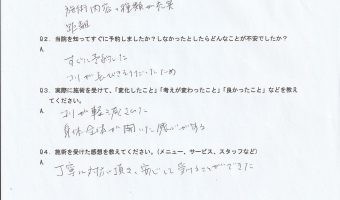 施術内容の種類が充実
距離
Q2. 当院を知ってすぐに予約しましたか？しなかったとしたらどんなことが不安でしたか？
A
すぐに予約した
コリが
ため
Q3. 実際に施術を受けて、「変化したこと」「考えが変わったこと」「良かったこと」などを教えてください。
A
コリが軽減された
身体全体が開いた感じがする
Q4. 施術を受けた感想を教えてください。（メニュー、サービス、スタッフなど）
A
丁寧に対応頂き、安心して受けることができた